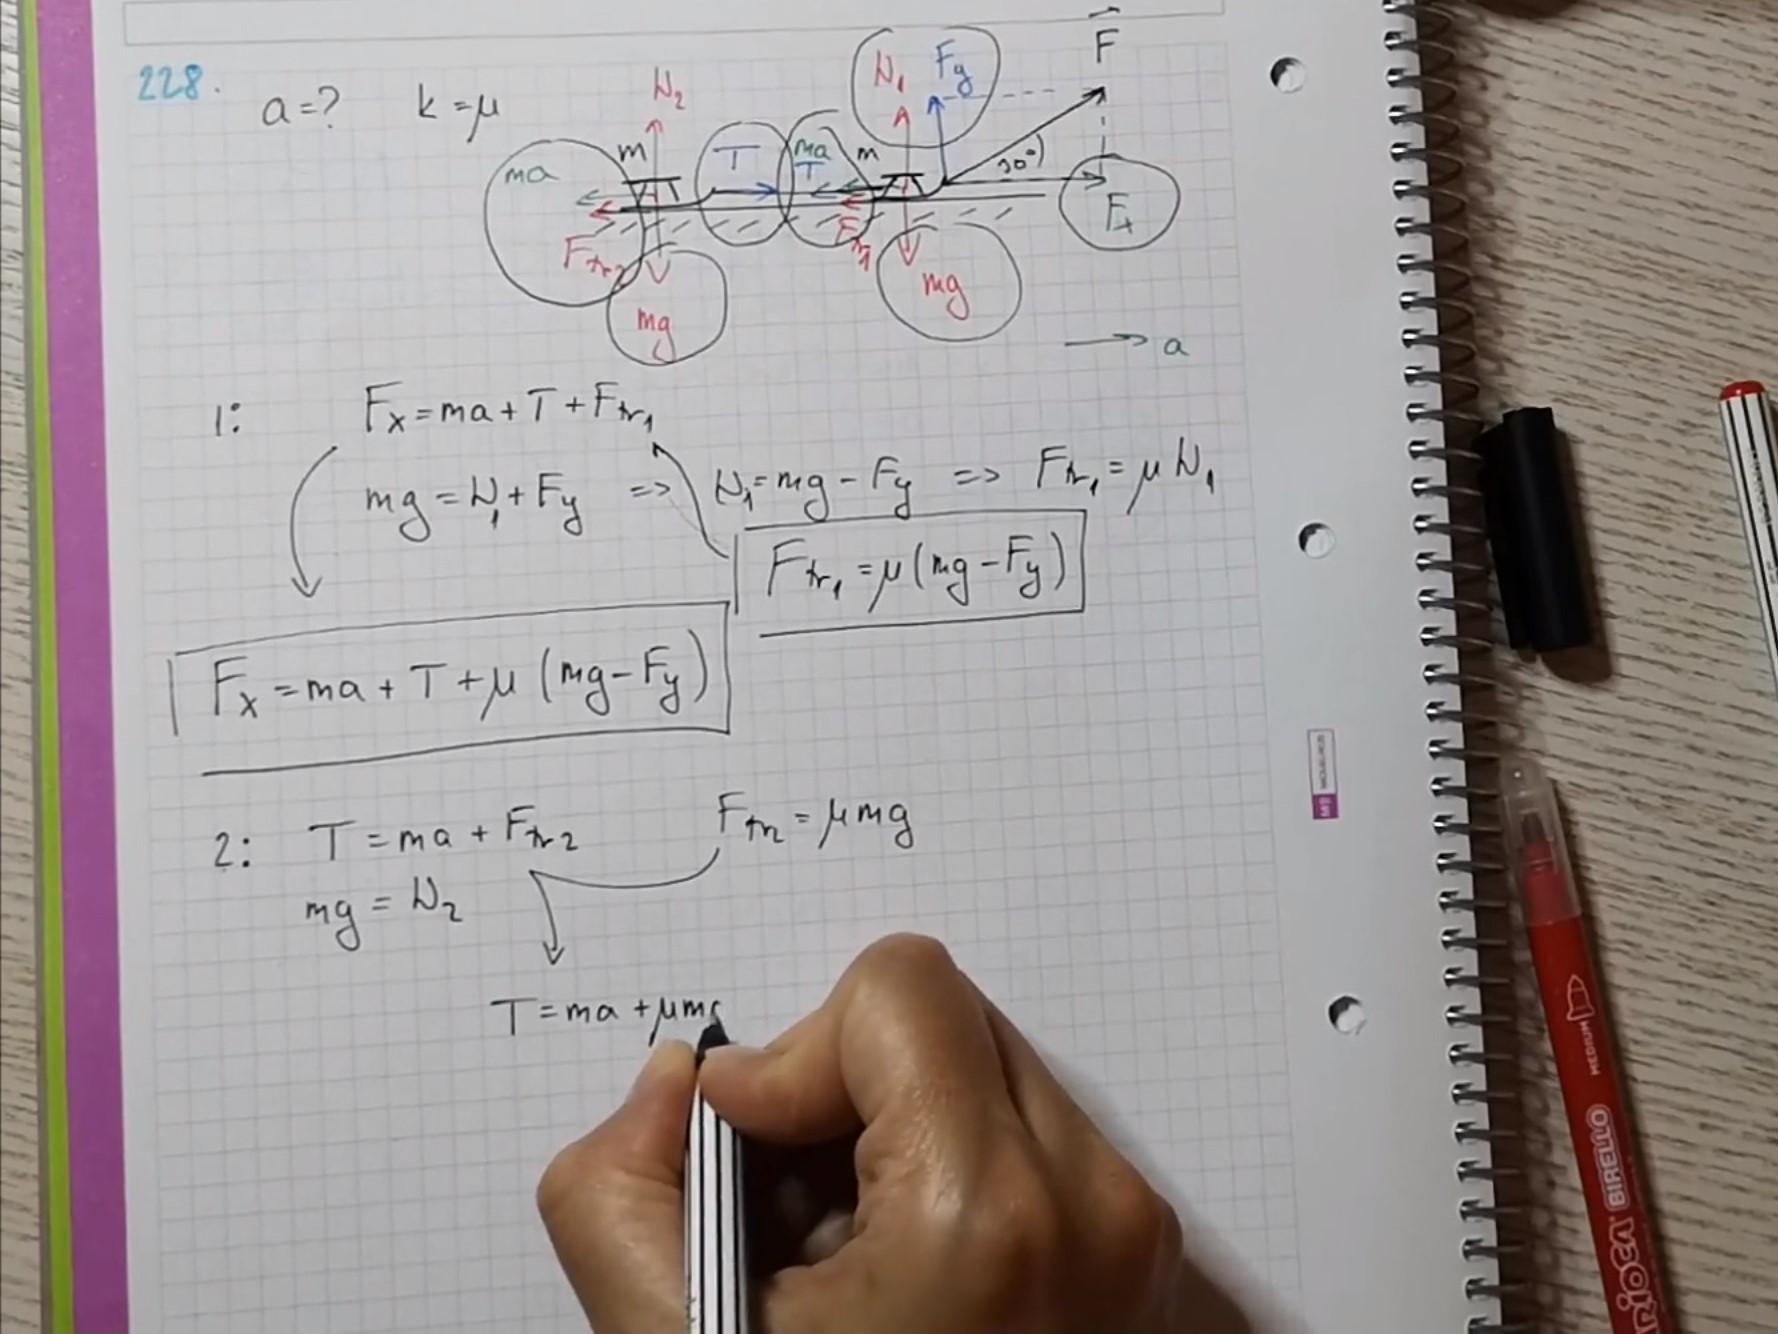 228.
a=? k=μ
N₂
N₁ Fy
F⃗
ma m T ma T m 30°
Ftr₂ Ftr₁ Fx
mg mg
a
1: Fx=ma+T+Ftr₁
mg=N₁+Fy => N₁=mg-Fy => Ftr₁=μN₁
Ftr₁=μ(mg-Fy)
Fx=ma+T+μ(mg-Fy)
2: T=ma+Ftr₂ Ftr₂=μmg
mg=N₂
T=ma+μmg
MEDIUM
RIOCA BIRELLO